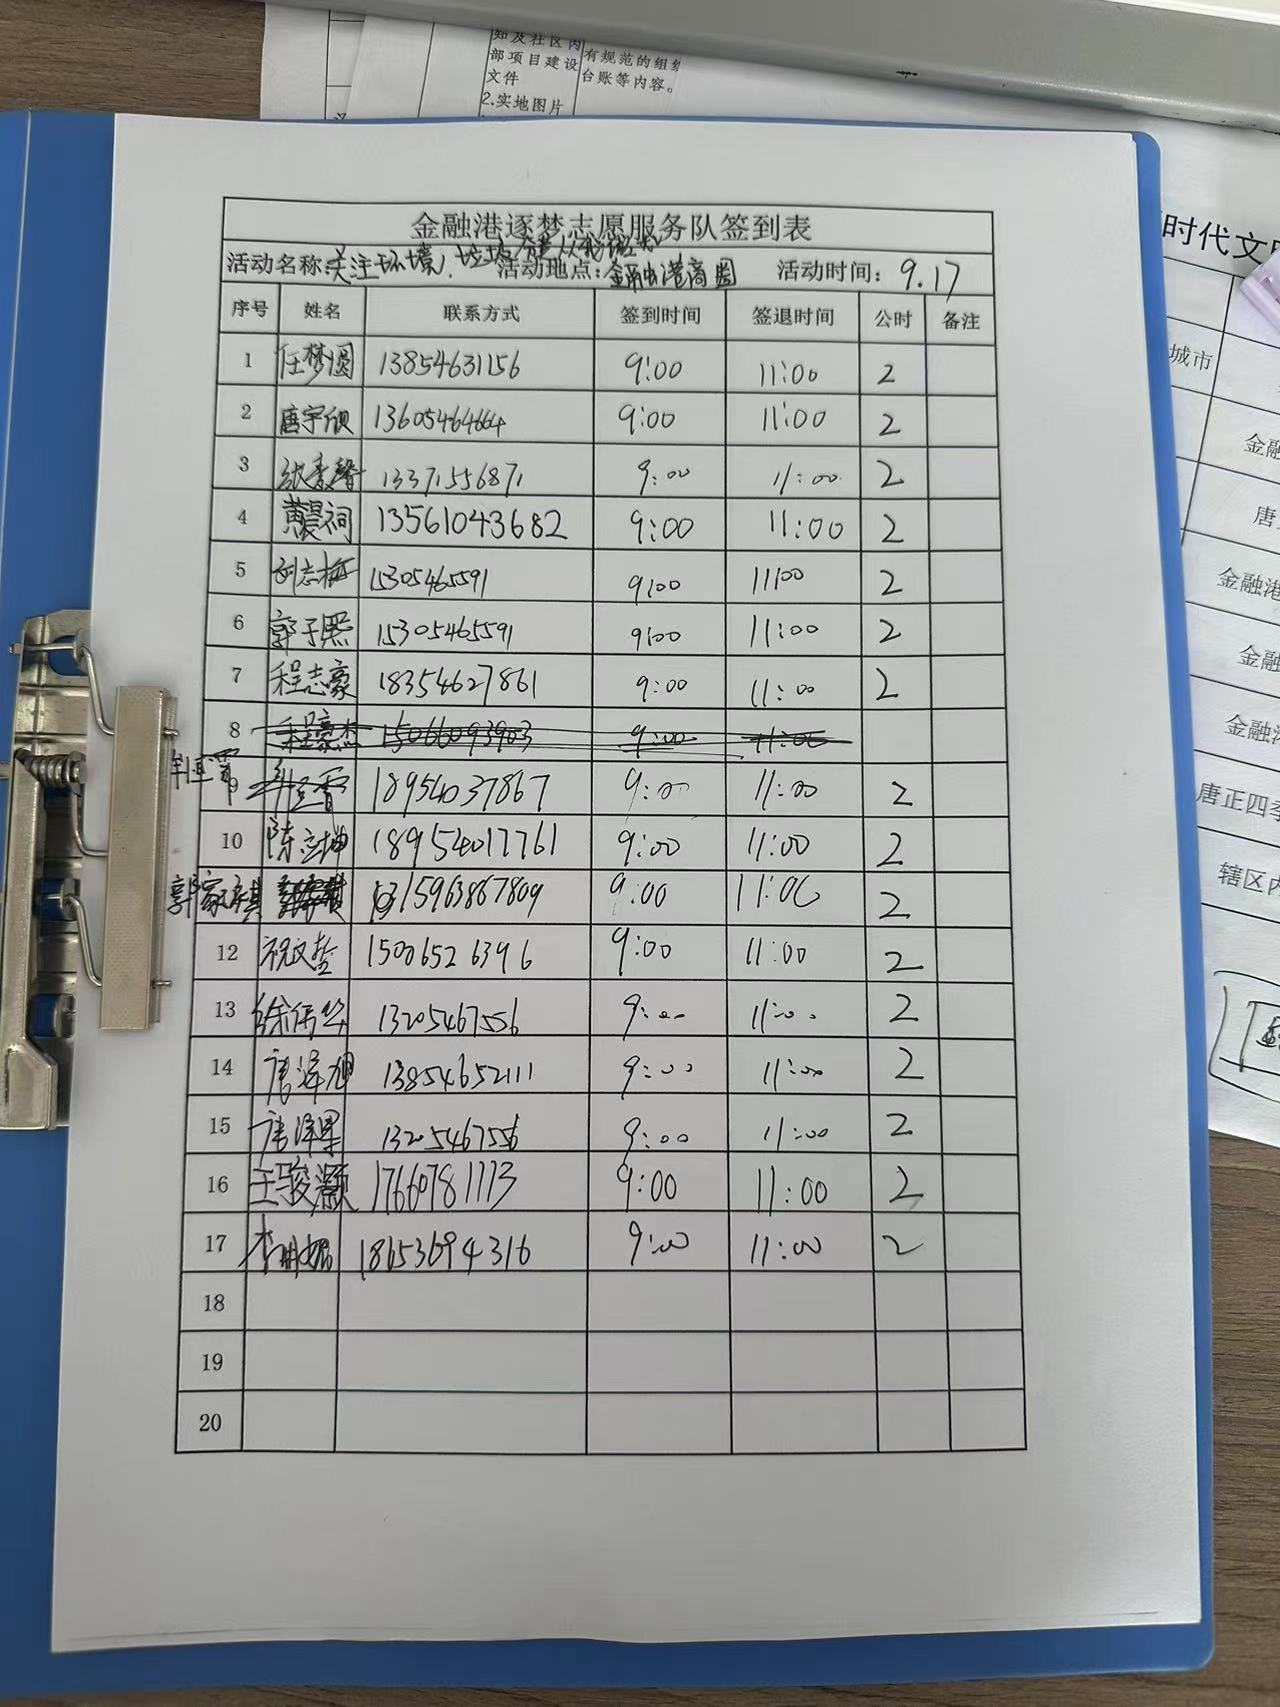 知及社区内
部项目建设
文件
2.实地图片
有规范的组织
台账等内容。
时代文明
城市
金融
唐
金融港
金融
金融港
唐正四季
辖区内
金融港逐梦志愿服务队签到表
活动名称:关注环境,垃圾分类从我做起 活动地点:金融港商圈 活动时间:9.17
序号 姓名 联系方式 签到时间 签退时间 公时 备注
1 任梦圆 13854631156 9:00 11:00 2
2 唐宇欣 13605464664 9:00 11:00 2
3 张豪馨 13371556871 9:00 11:00 2
4 黄晨祠 13561043682 9:00 11:00 2
5 刘志梅 15305465591 9:00 11:00 2
6 郭子熙 15305465591 9:00 11:00 2
7 程志豪 18354627861 9:00 11:00 2
8 程豪杰 15066093903 9:00 11:00
9 18954037867 9:00 11:00 2
10 陈立坤 18954017761 9:00 11:00 2
郭家祺 15963867809 9:00 11:00 2
12 祝文莹 15006526396 9:00 11:00 2
13 徐伟华 13205467556 9:00 11:00 2
14 唐泽旭 13854652111 9:00 11:00 2
15 唐泽果 13205467556 9:00 11:00 2
16 王骏灏 17660781773 9:00 11:00 2
17 李明娟 18653694316 9:00 11:00 2
18
19
20